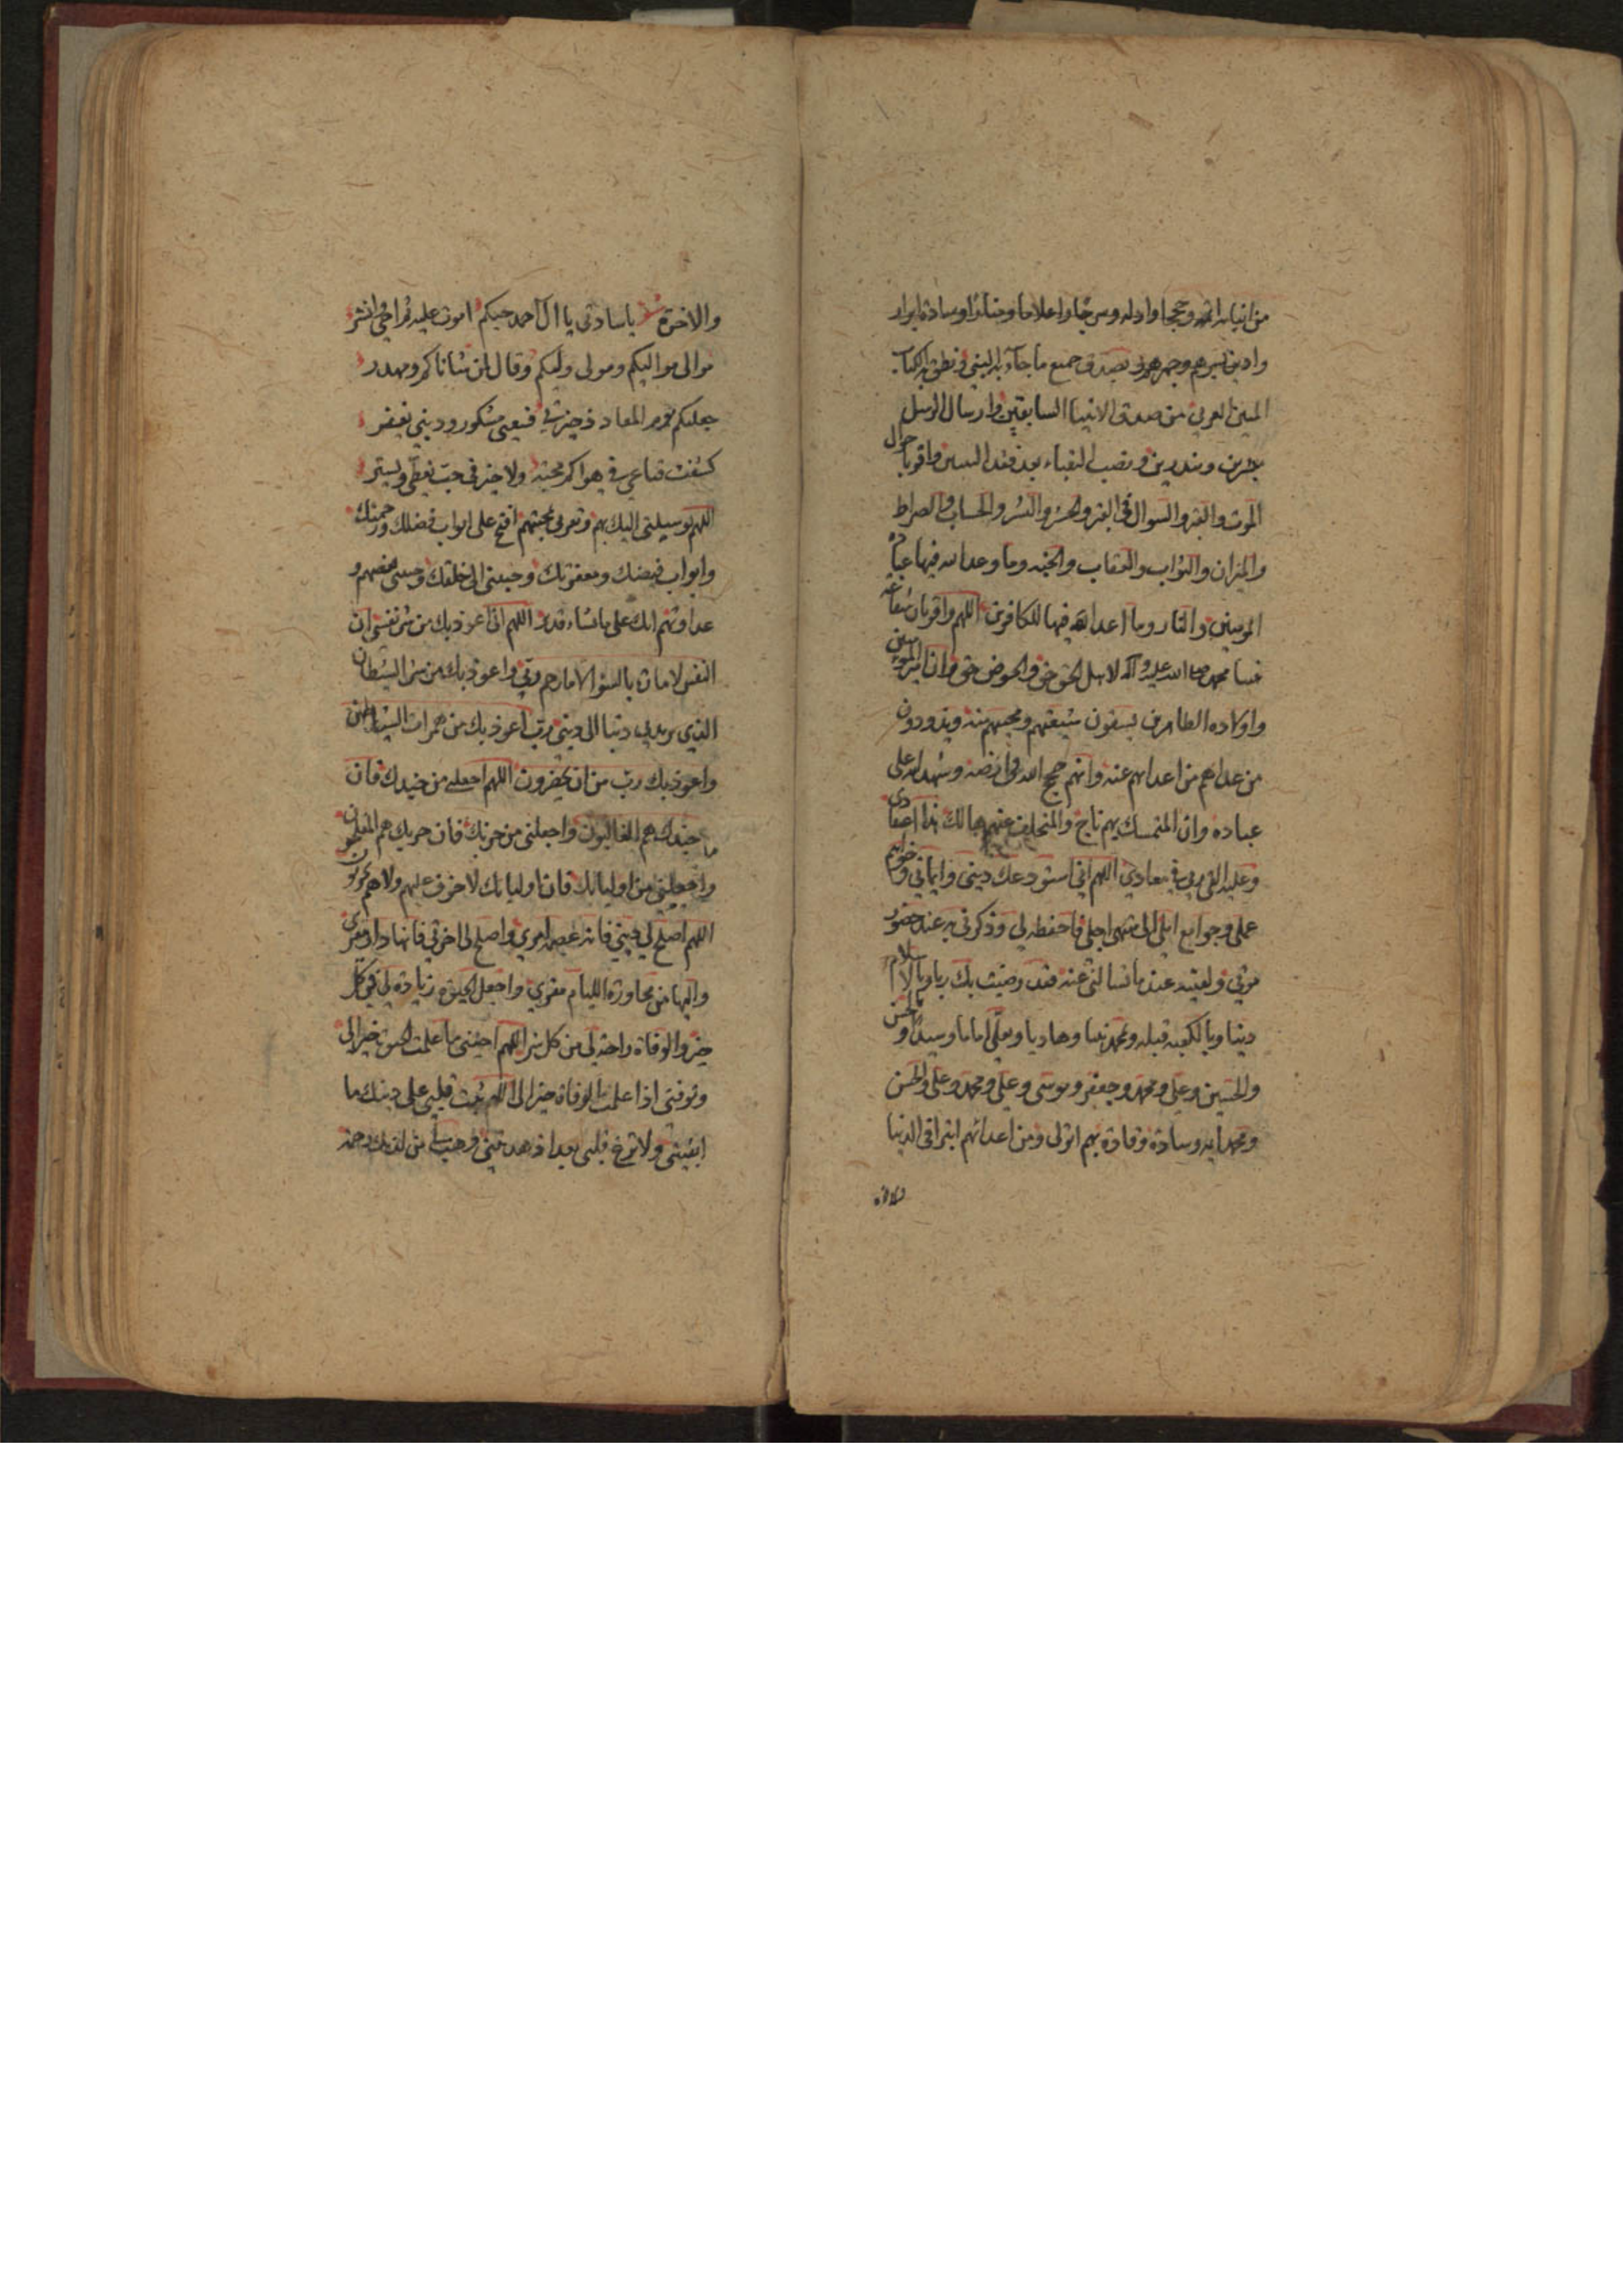 من انبيائه ائمه وحججا وادله وسرجا واعلاما ومنارا وسادة ابرار
وادين بسرهم وجهرهم بصدق جميع ما جآء به النبي ونطق به الكتاب
المبين العربي من صدق الانبيا السابقين وارسال الرسل
مبشرين ومنذرين ونصب النقباء بعد فقد النبيين واقر باحوال
الموت والقبر والسوال في القبر والحشر والنشر والحساب والصراط
والميزان والثواب والعقاب والجنه وما وعد الله فيها عباده
المومنين والنار وما اعد الله فيها للكافرين اللهم واقر بان شفاعه
نبينا محمد صلى الله عليه وآله لاهل الحق حق والحوض حق وان امير المومنين
واولاده الطاهرين يسقون شيعتهم ومحبيهم منه ويذودون
من عداهم من اعدائهم عنه وانهم حجج الله في ارضه وشهداؤه على
عباده وان المتمسك بهم ناج والمتخلف عنهم هالك هذا اعتقادي
وعليه القى ربي في معادي اللهم اني استودعك ديني وايماني وخواتيم
عملي وجوامع املي الى منتهى اجلي فاحفظه لي وذكرني به عند حضور
موتي ولقنيه عند ما تسالني عنه فقد رضيت بك ربا وبالاسلام
دينا وبالكعبه قبله وبمحمد نبيا وهاديا وبعلي اماما وسيدا وبالحسن
والحسين وعلي ومحمد وجعفر وموسى وعلي ومحمد وعلي والحسن
ومحمد ايمه وسادة وقادة بهم اتولى ومن اعدائهم اتبرا في الدنيا
والاخرة
والاخرة شعر يا سادتي يا ال احمد حبكم اموت عليه ثم احيى وانشر
موالى مواليكم ومولى وليكم وقال لمن شاناكم
جعلتكم يوم المعاد ذخيرتي فسعيي مشكور وديني يغفر
كشفت قناعي في هواكم محبة ولا خير في حب يغطى ويستر
اللهم بوسيلتي اليك بهم وتقربي بمحبتهم افتح على ابواب فضلك ورحمتك
وابواب فيضك ومغفرتك وحببني الى خلقك وجنبني بغضهم و
عداوتهم انك على ما تشاء قدير اللهم اني اعوذ بك من شر نفسي ان
النفس لامارة بالسوء الا ما رحم ربي واعوذ بك من شر الشيطان
الذي يريد بي دنيا الى ديني رب اعوذ بك من همزات الشياطين
واعوذ بك رب من ان يحضرون اللهم اجعلني من جندك فان
جندك هم الغالبون واجعلني من حزبك فان حزبك هم المفلحون
واجعلني من اوليائك فان اوليائك لا خوف عليهم ولا هم يحزنون
اللهم اصلح لي ديني فانه عصمه امري واصلح لي اخرتي فانها دار مقري
واليها من مجاورة الليام مفري واجعل الحيوة زيادة لي في كل
خير والوفاة راحة لي من كل شر اللهم احيني ما علمت الحيوة خيرا لي
وتوفني اذا علمت الوفاة خيرا لي اللهم ثبت قلبي على دينك ما
ابقيتني ولا تزغ قلبي بعد اذ هديتني وهب لي من لدنك رحمة